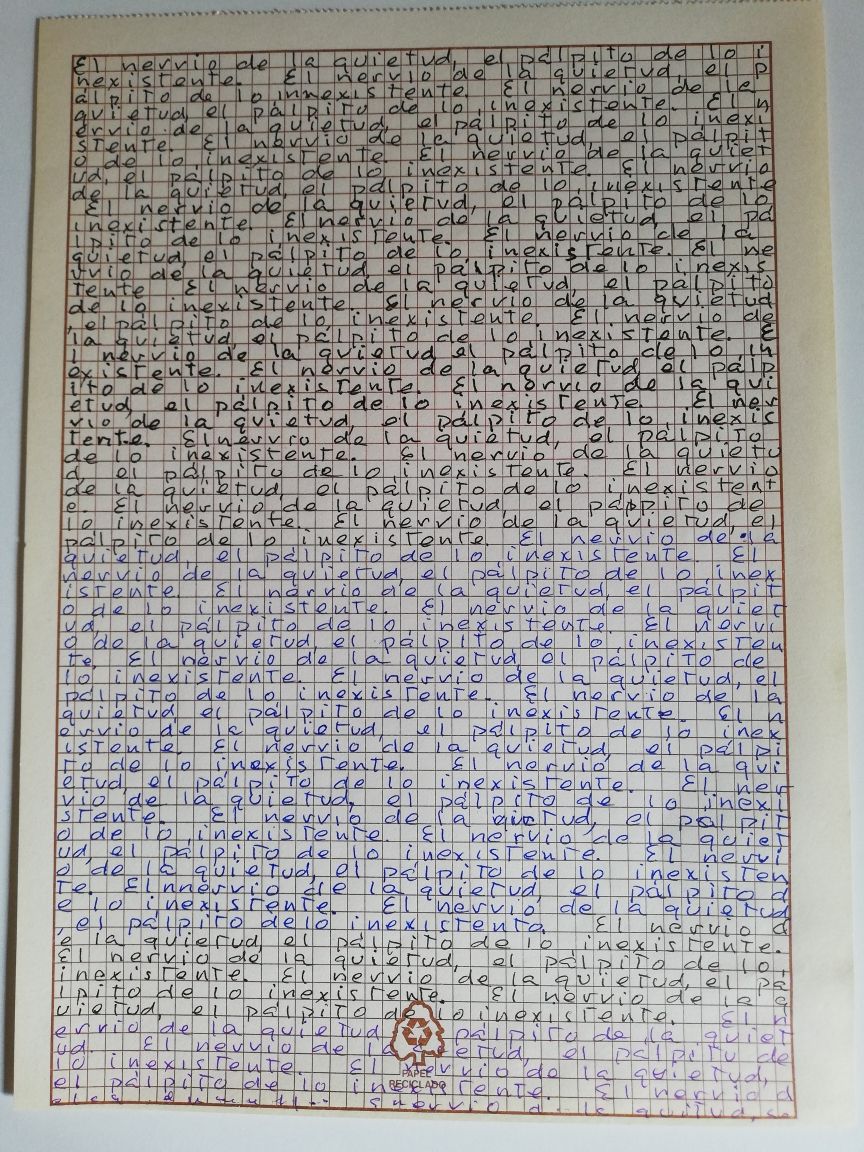 El nervio de la quietud, el pálpito de lo i
nexistente. El nervio de la quietud, el p
álpito de lo innexistente. El nervio de la
quietud, el pálpito de lo inexistente. El n
ervio de la quietud, el pálpito de lo inexi
stente. El nervio de la quietud, el pálpit
o de lo inexistente. El nervio de la quiet
ud, el pálpito de lo inexistente. El nervio
de la quietud, el pálpito de lo inexistente
El nervio de la quietud, el pálpito de lo
inexistente. El nervio de la quietud, el pá
lpito de lo inexistente. El nervio de la
quietud, el pálpito de lo inexistente. El ne
rvio de la quietud, el pálpito de lo inexis
tente El nervio de la quietud, el pálpito
de lo inexistente. El nervio de la quietud
, el pálpito de lo inexistente. El nervio de
la quietud, el pálpito de lo inexistente. E
l nervio de la quietud, el pálpito de lo in
existente. El nervio de la quietud, el pálp
ito de lo inexistente. El nervio de la qui
etud, el pálpito de lo inexistente. El ner
vio de la quietud, el pálpito de lo inexis
tente. El nervio de la quietud, el pálpito
de lo inexistente. El nervio de la quietu
d, el pálpito de lo inexistente. El nervio
de la quietud, el pálpito de lo inexistent
e. El nervio de la quietud, el páppito de
lo inexistente. El nervio de la quietud, el
pálpito de lo inexistente. El nervio de la
quietud, el pálpito de lo inexistente El
nervio de la quietud, el pálpito de lo inex
istente. El nervio de la quietud, el pálpit
o de lo inexistente. El nervio de la quiet
ud, el pálpito de lo inexistente. El nervi
o de la quietud, el pálpito de lo inexisten
te. El nervio de la quietud el pálpito de
lo inexistente. El nervio de la quietud, el
pálpito de lo inexistente. El nervio de la
quietud el pálpito de lo inexistente. El n
ervio de la quietud, el pálpito de lo inex
istente. El nervio de la quietud, el pálpi
to de lo inexistente. El nervio de la qui
etud, el pálpito de lo inexistente. El ner
vio de la quietud, el pálpito de lo inexi
stente. El nervio de la quietud, el pálpit
o de lo inexistente. El nervio de la quiet
ud, el pálpito de lo inexistente. El nervi
o de la quietud, el pálpito de lo inexisten
te. El nnervio de la quietud, el pálpito d
e lo inexistente. El nervio de la quietud
, el pálpito de lo inexistente. El nervio d
e la quietud, el pálpito de lo inexistente.
El nervio de la quietud, el pálpito de lo
inexistente. El nervio de la quietud, el pá
lpito de lo inexistente. El nervio de la q
uietud, el pálpito de lo inexistente. El n
ervio de la quietud pálpito de la quiet
ud. El nervio de la quietud, el pálpito de
lo inexistente. El nervio de la quietud,
el pálpito de lo inexistente. El nervio d
nervio de la quietud,
PAPEL
RECICLADO